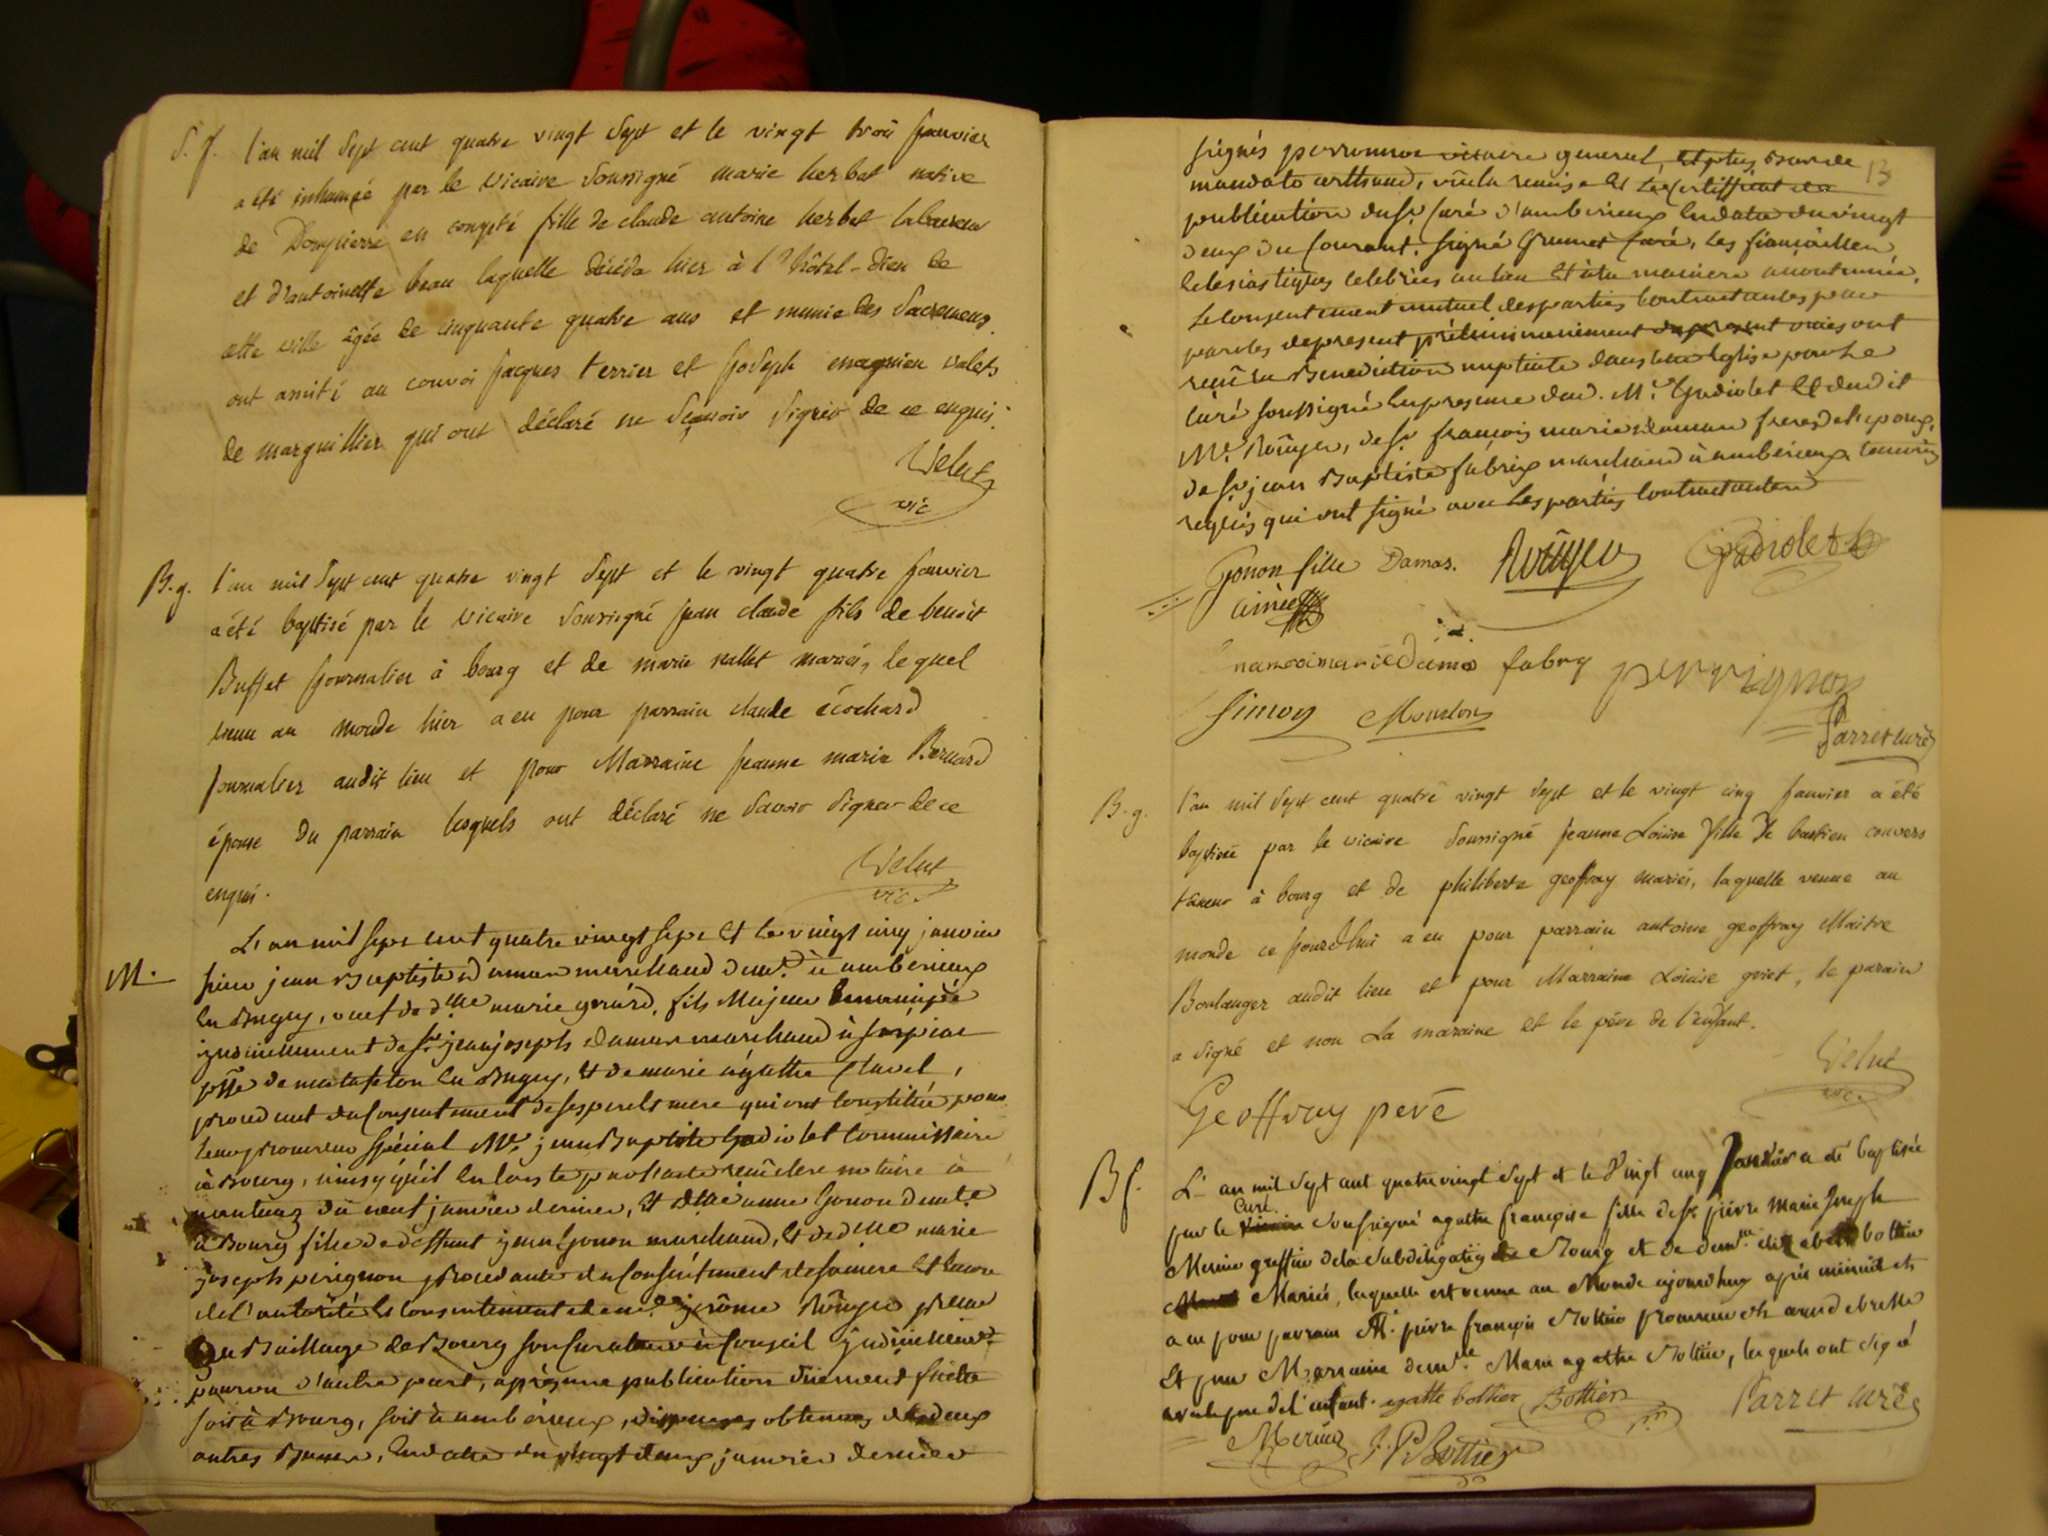 S. f. l'an mil sept cent quatre vingt sept et le vingt trois janvier
a été inhumée par le vicaire soussigné marie herbet native
de Dompierre en comté fille de claude antoine herbet laboureur
et d'antoinette beau laquelle décéda hier à l'hôtel-dieu de
cette ville âgée de cinquante quatre ans et munie des sacremens.
ont assisté au convoi jacques terrier et joseph magnien valets
de marguillier qui ont déclaré ne sçavoir signer de ce enquis.
Velut
vic
B. g. l'an mil sept cent quatre vingt sept et le vingt quatre janvier
a été baptisé par le vicaire soussigné jean claude fils de benoit
Buffet journalier à bourg et de marie mariés, lequel
venu au monde hier a eu pour parrain claude écochard
journalier audit lieu et pour Marraine jeanne marie Bernard
épouse du parrain lesquels ont déclaré ne savoir signer de ce
enquis.
Velut
vic
L'an mil sept cent quatre vingt sept et le vingt cinq janvier
M. sieur jean Baptiste damas marchand demt. à amberieux
en Bugey, veuf de dlle marie gérard, fils Majeur émancipé
de sr jean joseph damas marchand à
psse de matafelon en Bugey, et de marie agathe Clavel,
procedant du consentement de ses pere et mere qui ont constitué pour
leur procureur spécial Me. jean Baptiste gadiolet commissaire
à Bourg, ainsy qu'il en conste par l'acte notaire à
nantua du neuf janvier dernier, et dlle aimée gonon demte
à Bourg fille de deffunt jean gonon marchand, et de dlle marie
joseph perignon procedante du consentement de sa mere et encore
de l'autorité et consentement de me jerôme Roüyer
au Bailliage de Bourg son curateur
pourvu d'autre part, après une publication düement faite
soit à Bourg, soit à amberieux, dispenses obtenues des deux
autres Bans, en date du vingt deux janvier dernier
13
signés perronnoe vicaire general, et plus Bas de
mandato, vu la remise et le certifficat de
publication du sr. curé d'amberieux en date du vingt
deux du courant, signé grumet curé, les fiançailles
eclesiastiques celebrées au lieu et à la maniere accoutumée,
le consentement mutuel des parties contractantes par
paroles de present préliminairement ont
reçû la Benediction nuptiale dans
curé soussigné en presence dud. Me. gadiolet et dudit
Me. Roüyer, de sr. françois marie damas frere de l'epoux,
de sr jean Baptiste fabry marchand à amberieux temoins
requis qui ont signé avec les parties contractantes
Gonon fille Damas. Roüyer Gadiolet
aimée
francoi marie Dama fabry perrignon
Simon Mourlon
Parret curé
B. g. l'an mil sept cent quatre vingt sept et le vingt cinq janvier a été
baptisée par le vicaire soussigné jeanne Louise fille de bastien convers
taneur à bourg et de philiberte geoffray mariés, laquelle venue au
monde ce jourd'hui a eu pour parrain antoine geoffray Maitre
Boulanger audit lieu et pour Marraine Louise, le parain
a signé et non la maraine et le pére de l'enfant.
Velut
vic.
Geoffray peré
Bf. L'an mil sept cent quatre vingt sept et le vingt cinq janvier a été baptisée
curé
par le soussigné agathe françoise fille de sr pierre Marie joseph
Merme greffier de la subdélégation de Bourg et de demlle elizabeth bottier
Mariés, laquelle est venue au Monde aujourdhuy après minuit et
a eu pour parrain Me. pierre françois Bottier procureur
et pour Marraine demlle. Marie agathe Bottier, lesquels ont signé
avec le pere de l'enfant. agathe bottier Bottier Parret curé
J. P. Bottier